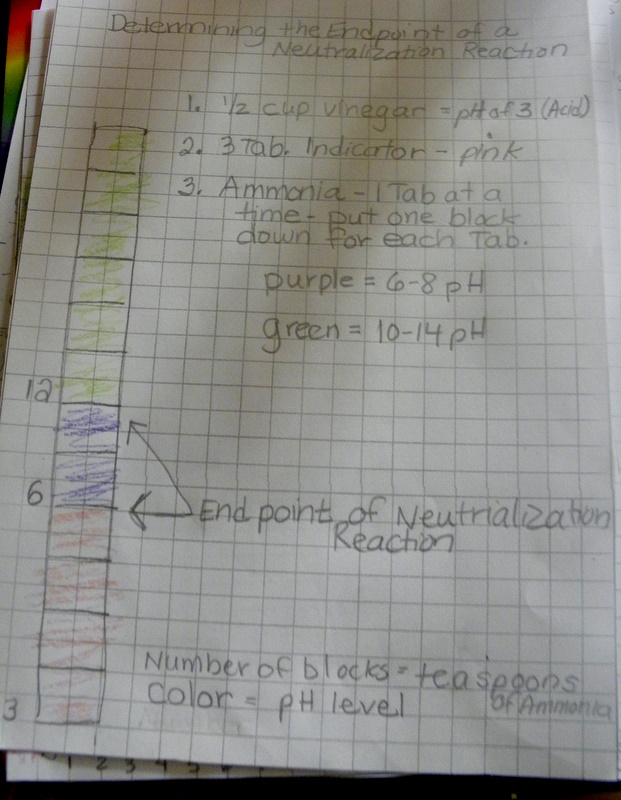 Determining the Endpoint of a
Neutralization Reaction
1. 1/2 cup vinegar = pH of 3 (Acid)
2. 3 Tab. Indicator - pink
3. Ammonia - 1 Tab at a
time - put one block
down for each Tab.
purple = 6-8 pH
green = 10-14 pH
12
6
End point of Neutrialization
Reaction
Number of blocks = teaspoons
of Ammonia
Color = pH level
3
1 2 3 4 5 6